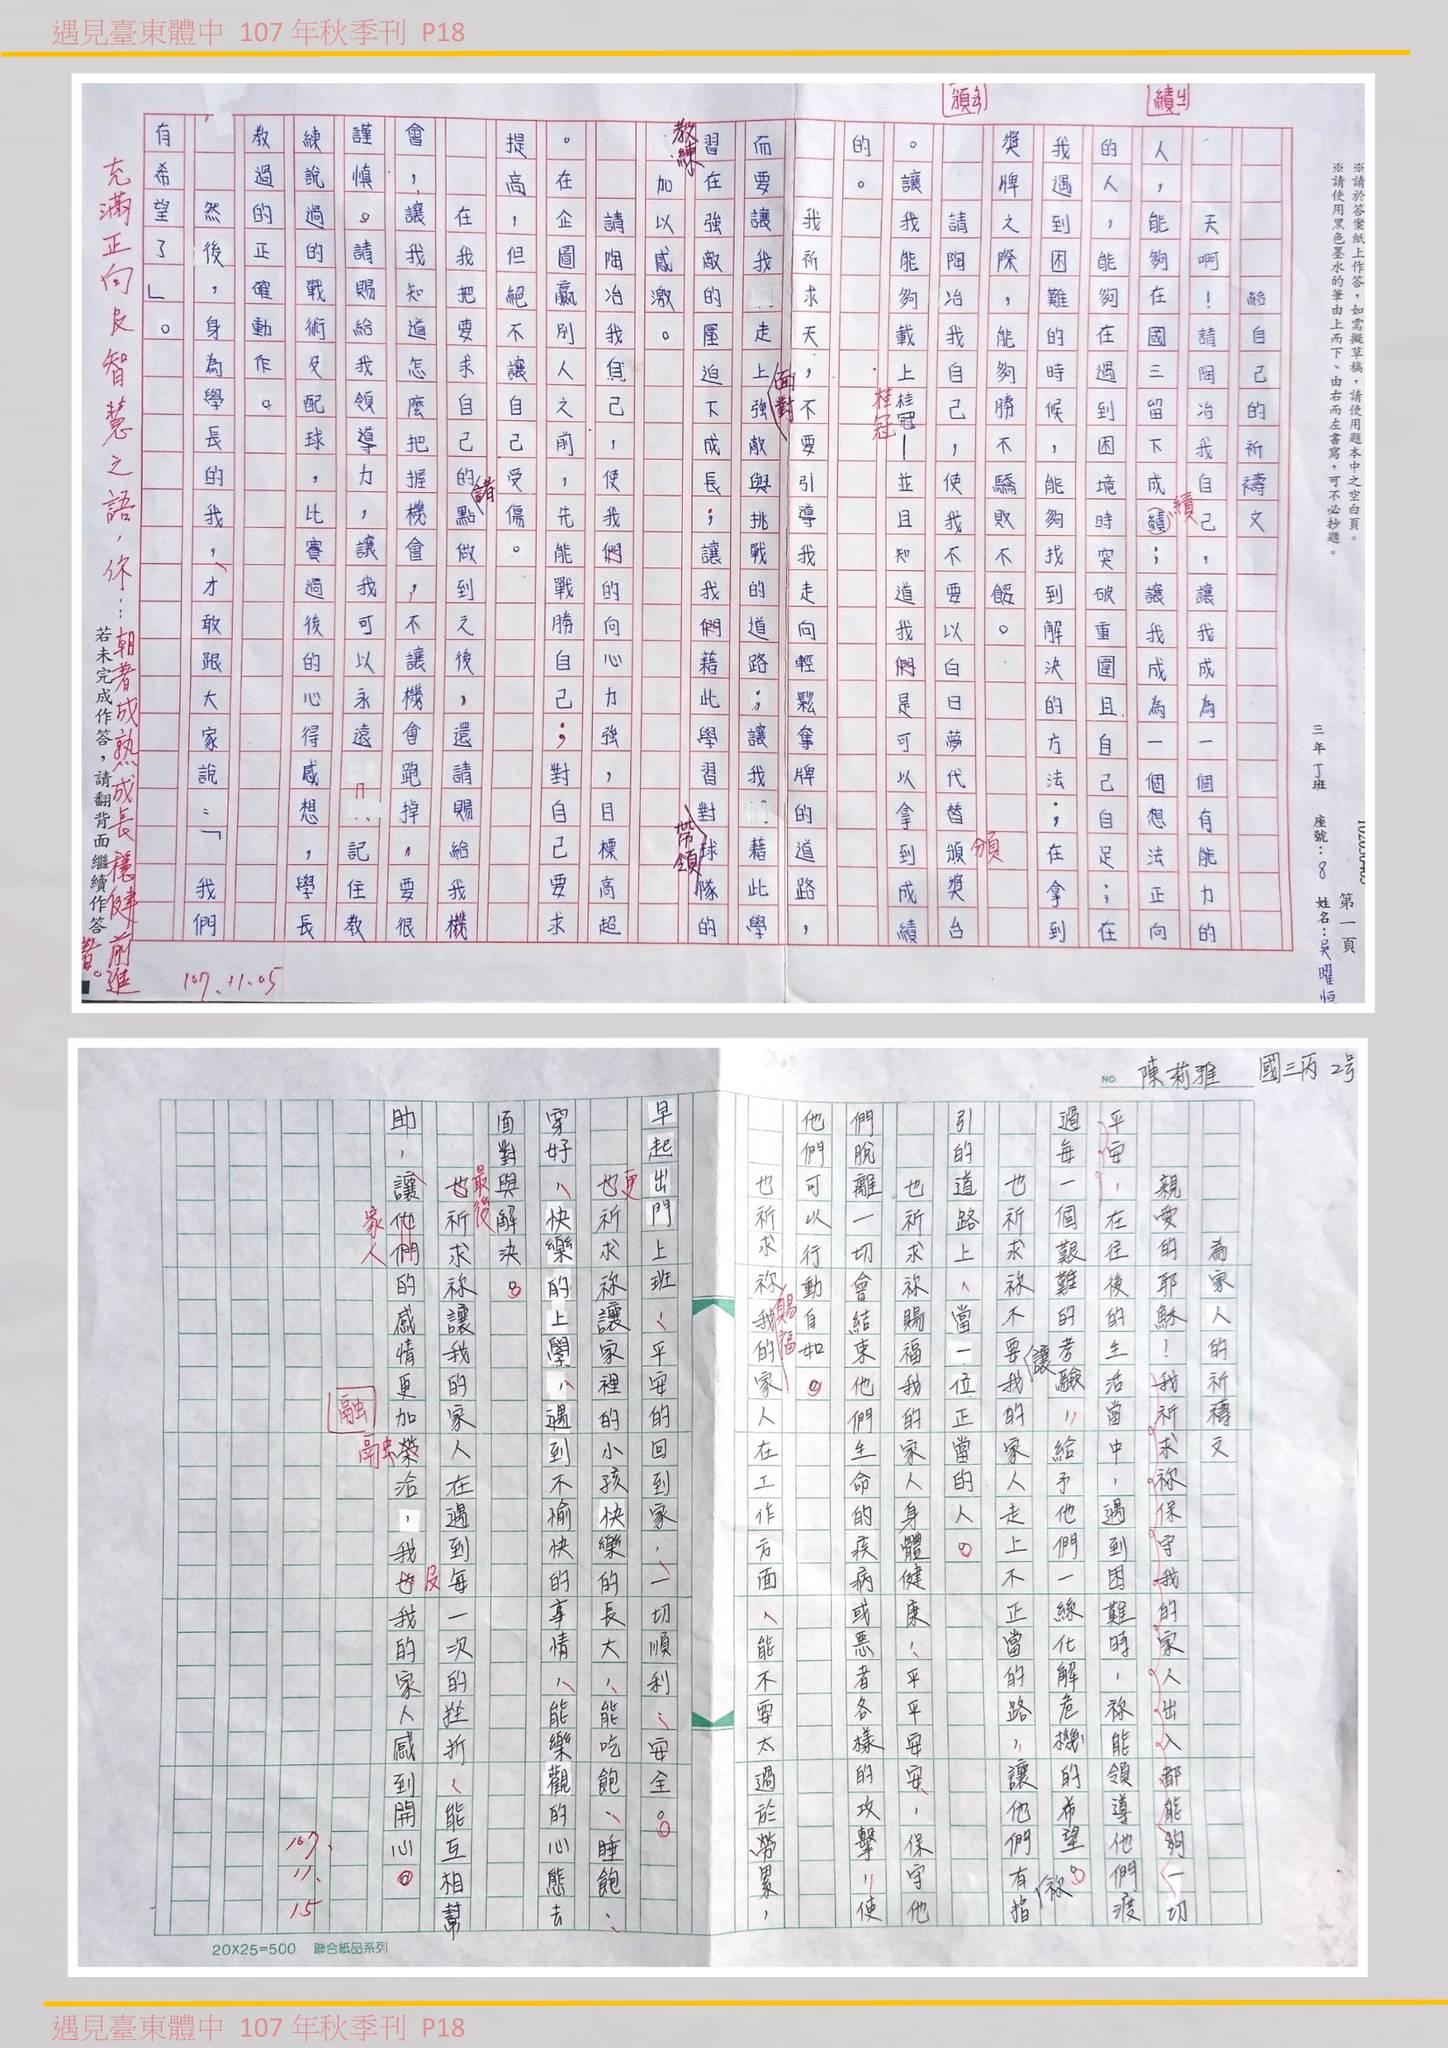 遇見臺東體中 107 年秋季刊 P18
※請於答案紙上作答，如需擬草稿，請使用題本中之空白頁。
※請使用黑色墨水的筆由上而下、由右而左書寫，可不必抄題。
第一頁
三年丁班 座號：8 姓名：吳曜恒
績
頒
給自己的祈禱文
天啊！請陶冶我自己，讓我成為一個有能力的
人，能夠在國三留下成績；讓我成為一個想法正向
績
的人，能夠在遇到困境時突破重圍且自己自足；在
我遇到困難的時候，能夠找到解決的方法；在拿到
獎牌之際，能夠勝不驕敗不餒。
請陶冶我自己，使我不要以白日夢代替頒獎台
頒
。讓我能夠載上桂冠—並且知道我們是可以拿到成績
桂冠
的。
我祈求天，不要引導我走向輕鬆奪牌的道路，
而要讓我走上強敵與挑戰的道路；讓我藉此學
面對
習在強敵的壓迫下成長；讓我們藉此學習對球隊的
教練
帶領
加以感激。
請陶冶我自己，使我們的向心力強，目標高超
。在企圖贏別人之前，先能戰勝自己；對自己要求
提高，但絕不讓自己受傷。
在我把要求自己的點做到之後，還請賜給我機
會，讓我知道怎麼把握機會，不讓機會跑掉，要很
謹慎。請賜給我領導力，讓我可以永遠記住教
練說過的戰術及配球，比賽過後的心得感想，學長
教過的正確動作。
然後，身為學長的我，才敢跟大家說：「我們
有希望了」。
充滿正向及智慧之語，你…朝著成熟成長穩健前進
若未完成作答，請翻背面繼續作答
107.11.05
NO. 陳莉雅 國三丙 2号
為家人的祈禱文
親愛的耶穌！我祈求祢保守我的家人出入都能夠一切
平安，在往後的生活當中，遇到困難時，祢能領導他們渡
過每一個艱難的考驗，給予他們一絲化解危機的希望。
也祈求祢不要我的家人走上不正當的路，讓他們有指
讓
祢
引的道路上，當一位正當的人。
也祈求祢賜福我的家人身體健康，平平安安，保守他
們脫離一切會結束他們生命的疾病或惡者各樣的攻擊，使
他們可以行動自如。
也祈求祢我的家人在工作方面，能不要太過於勞累，
賜福
早起出門上班，平安的回到家，一切順利，安全。
也祈求祢讓家裡的小孩快樂的長大，能吃飽，睡飽，
更
穿好，快樂的上學，遇到不愉快的事情，能樂觀的心態去
面對與解決。
也祈求祢讓我的家人在遇到每一次的挫折，能互相幫
最後
助，讓他們的感情更加榮洽，我也我的家人感到開心。
家人
融
融
及
107.11.15
20X25=500 聯合紙品系列
遇見臺東體中 107 年秋季刊 P18